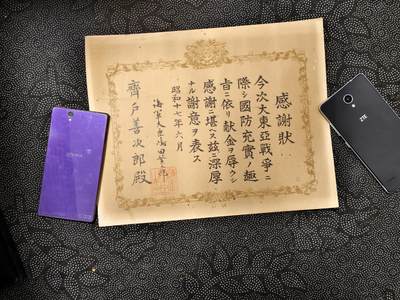 感謝狀
今次大東亞戰爭ニ
際シ國防充實ノ趣
旨ニ依リ献金ヲ辱ウシ
感謝ニ堪ヘス茲ニ深厚
ナル謝意ヲ表ス
昭和十七年六月
海軍大臣嶋田繁太郎
齊戸善次郎殿
ZTE